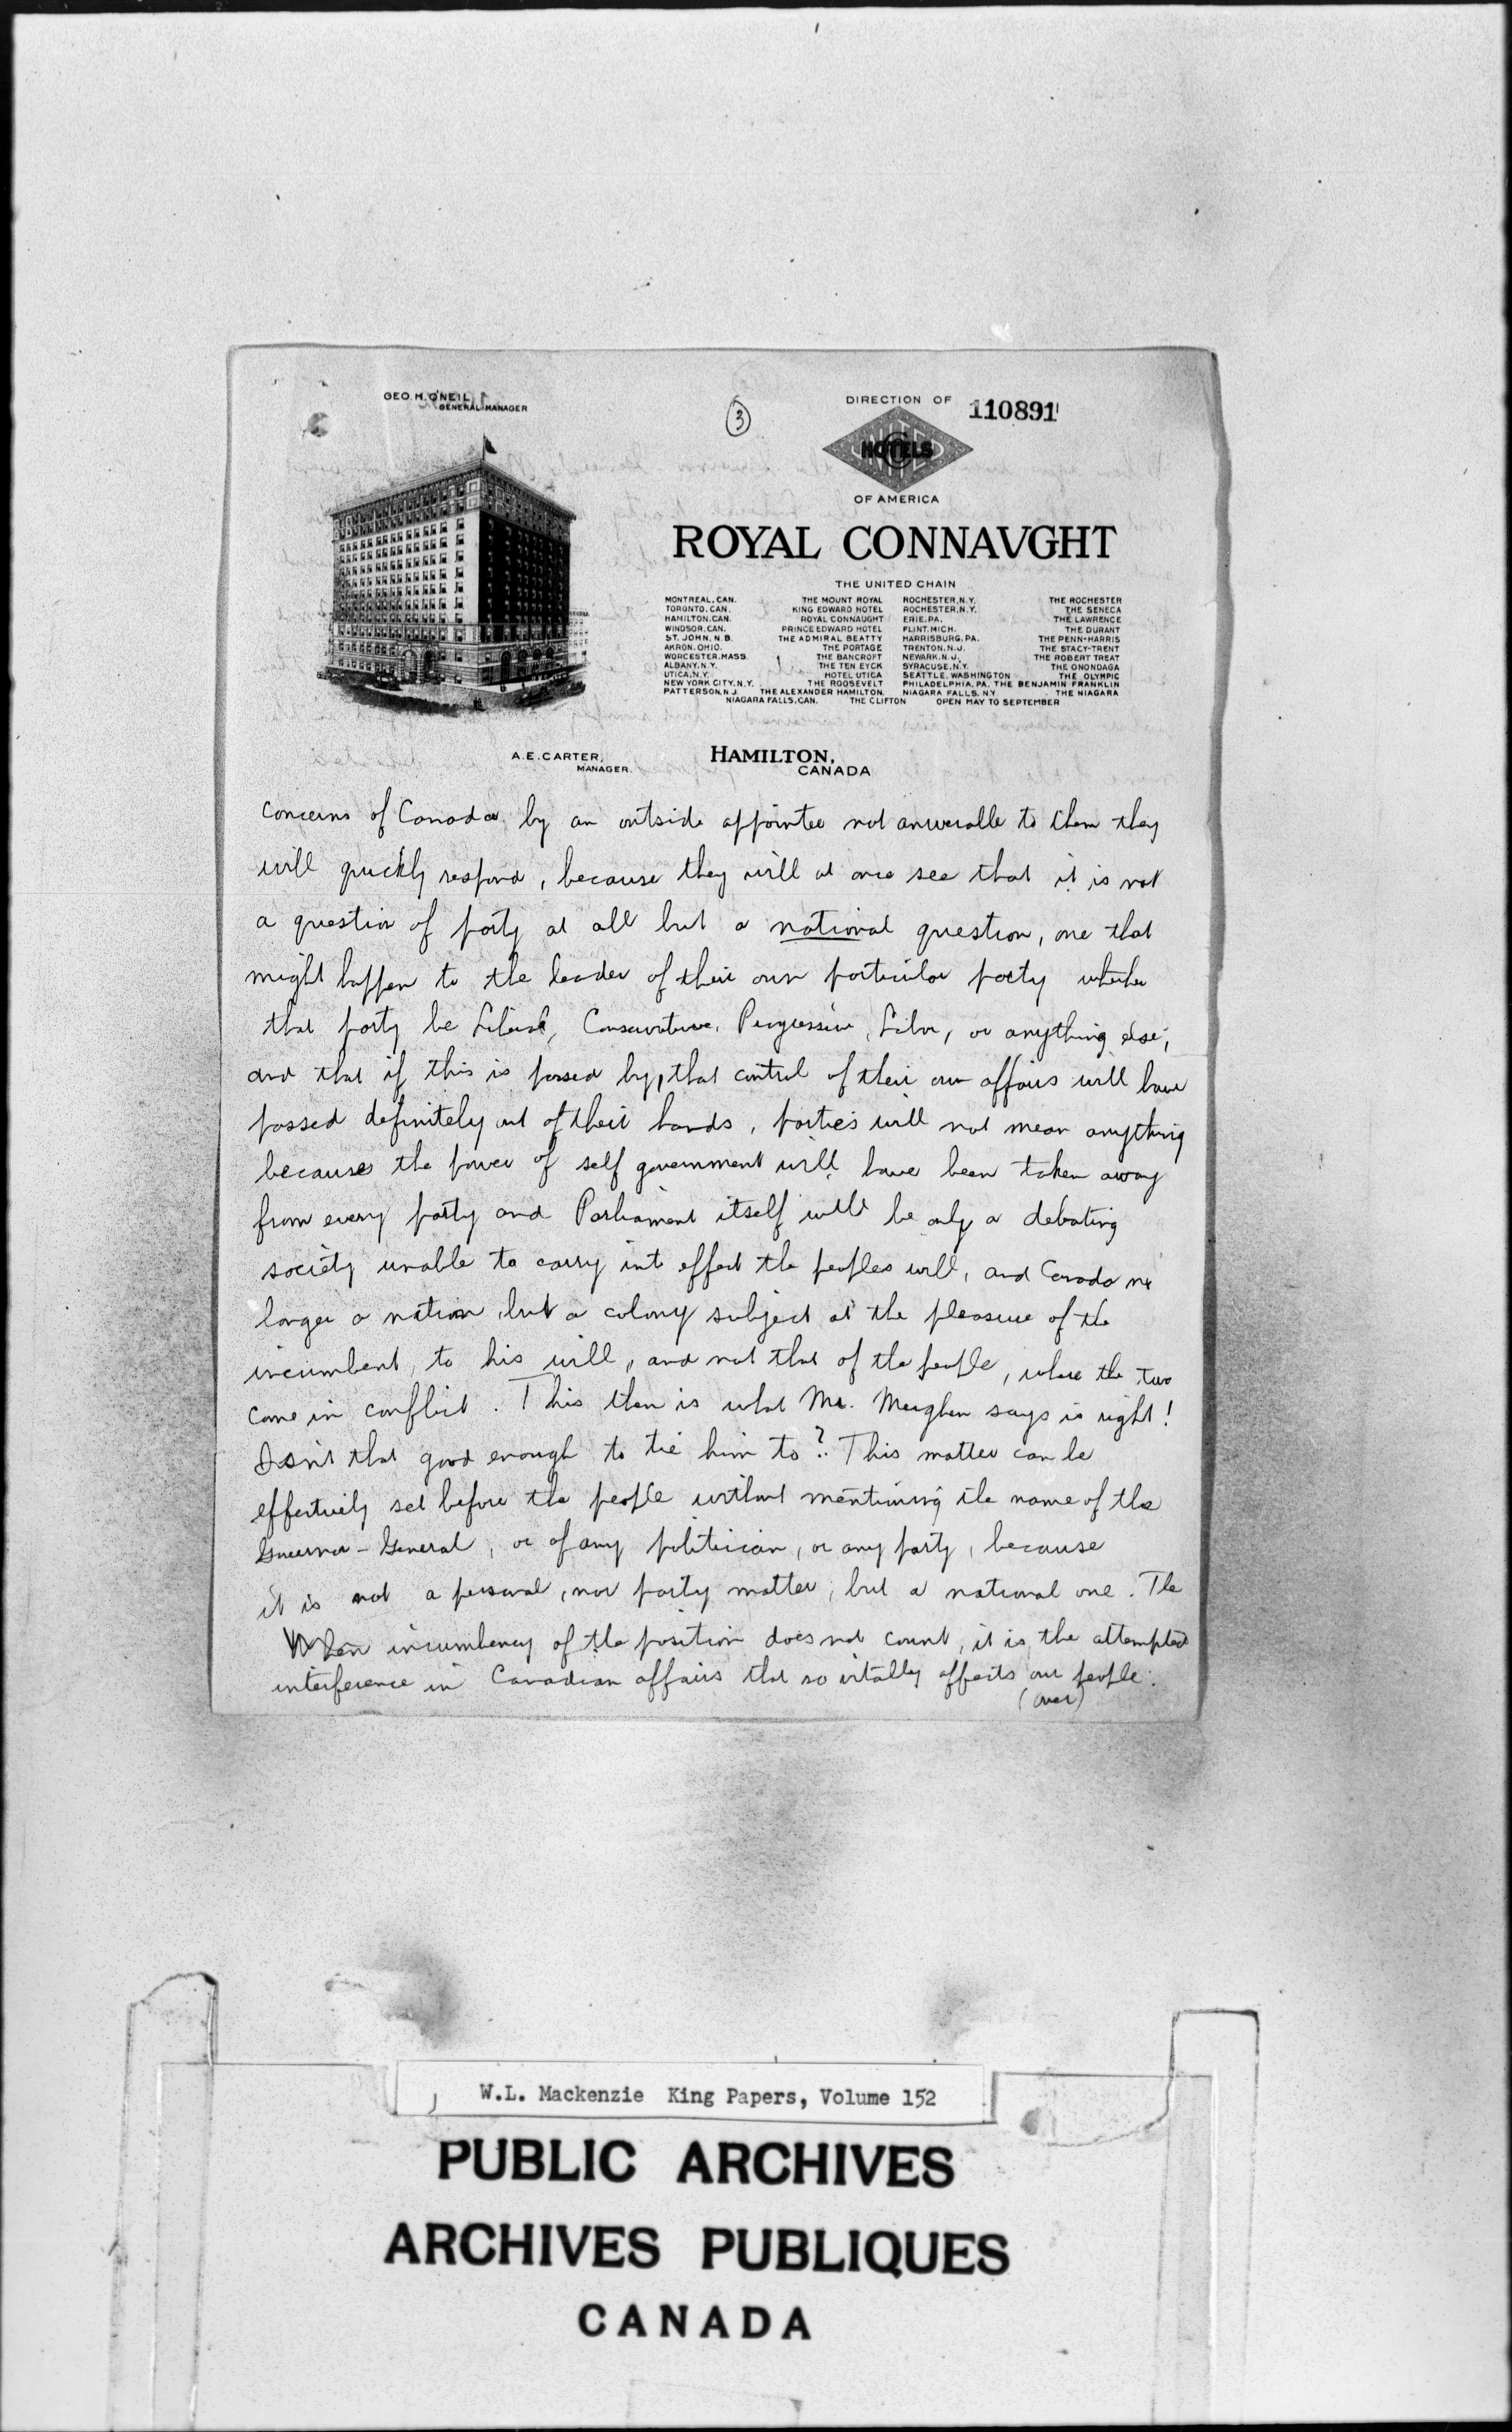 GEO. H. O'NEIL
GENERAL MANAGER
3
DIRECTION OF
110891
UNITED
HOTELS
OF AMERICA
ROYAL CONNAVGHT
THE UNITED CHAIN
MONTREAL, CAN. THE MOUNT ROYAL ROCHESTER, N.Y. THE ROCHESTER
TORONTO, CAN. KING EDWARD HOTEL ROCHESTER, N.Y. THE SENECA
HAMILTON, CAN. ROYAL CONNAUGHT ERIE, PA. THE LAWRENCE
WINDSOR, CAN. PRINCE EDWARD HOTEL FLINT, MICH. THE DURANT
ST. JOHN, N.B. THE ADMIRAL BEATTY HARRISBURG, PA. THE PENN-HARRIS
AKRON, OHIO. THE PORTAGE TRENTON, N.J. THE STACY-TRENT
WORCESTER, MASS. THE BANCROFT NEWARK, N.J. THE ROBERT TREAT
ALBANY, N.Y. THE TEN EYCK SYRACUSE, N.Y. THE ONONDAGA
UTICA, N.Y. HOTEL UTICA SEATTLE, WASHINGTON THE OLYMPIC
NEW YORK CITY, N.Y. THE ROOSEVELT PHILADELPHIA, PA. THE BENJAMIN FRANKLIN
PATTERSON, N.J. THE ALEXANDER HAMILTON. NIAGARA FALLS, N.Y. THE NIAGARA
NIAGARA FALLS, CAN. THE CLIFTON OPEN MAY TO SEPTEMBER
A. E. CARTER,
MANAGER.
HAMILTON,
CANADA
concerns of Canada by an outside appointee not answerable to them they
will quickly respond, because they will at once see that it is not
a question of party at all but a national question, one that
might happen to the leader of their own particular party whether
that party be Liberal, Conservative, Progressive, Labor, or anything else;
and that if this is passed by, that control of their own affairs will have
passed definitely out of their hands, parties will not mean anything
because the power of self government will have been taken away
from every party and Parliament itself will be only a debating
society unable to carry into effect the peoples will, and Canada no
longer a nation but a colony subject at the pleasure of the
incumbent, to his will, and not that of the people, where the two
come in conflict. This then is what Mr. Meighen says is right!
Isn't that good enough to tie him to? This matter can be
effectively set before the people without mentioning the name of the
Governor-General, or of any politician, or any party, because
it is not a personal, nor party matter, but a national one. The
incumbency of the position does not count, it is the attempted
interference in Canadian affairs that so vitally affects our people.
(over)
W.L. Mackenzie King Papers, Volume 152
PUBLIC ARCHIVES
ARCHIVES PUBLIQUES
CANADA